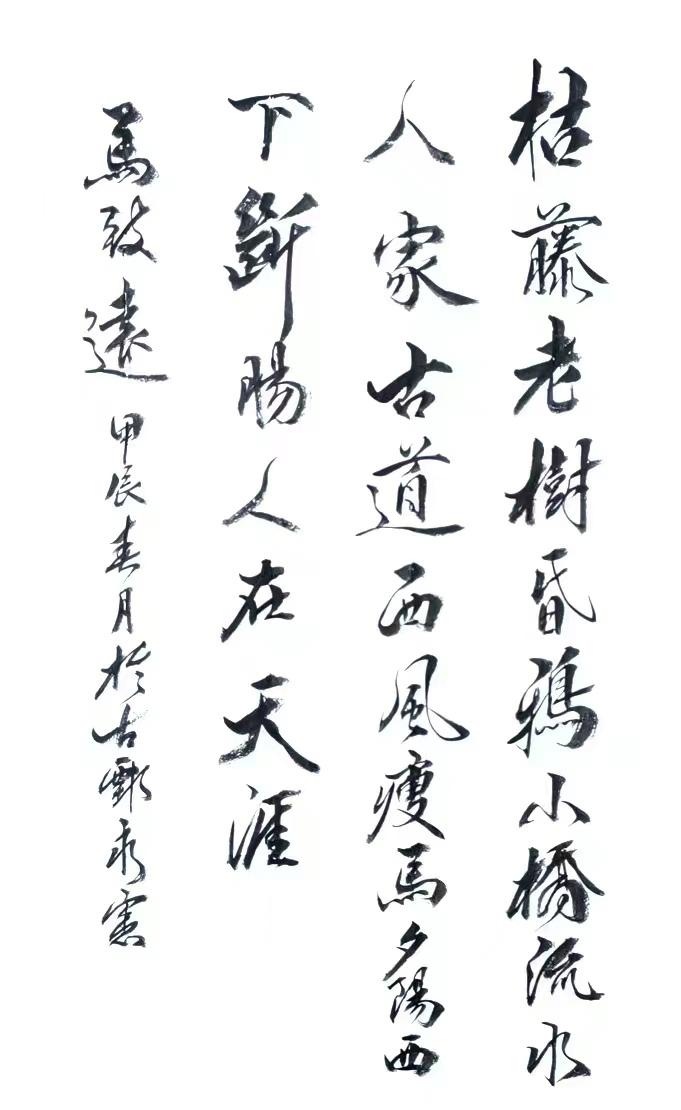 枯藤老樹昏鴉小橋流水
人家古道西風瘦馬夕陽西
下斷腸人在天涯
馬致遠 甲辰春月於古鄣永憲